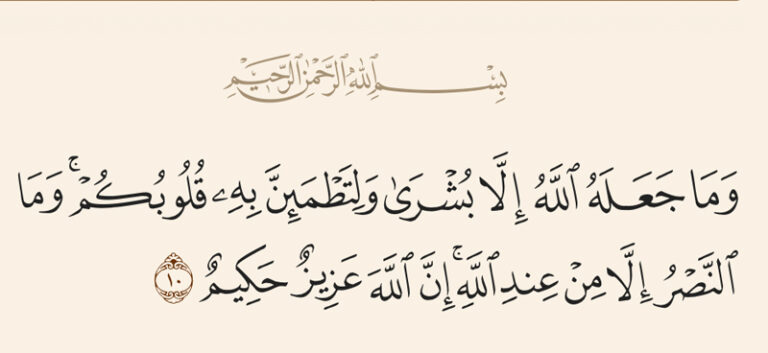 بِسْمِ ٱللَّهِ ٱلرَّحْمَٰنِ ٱلرَّحِيمِ
وَمَا جَعَلَهُ ٱللَّهُ إِلَّا بُشْرَىٰ وَلِتَطْمَئِنَّ بِهِۦ قُلُوبُكُمْ ۚ وَمَا
ٱلنَّصْرُ إِلَّا مِنْ عِندِ ٱللَّهِ ۚ إِنَّ ٱللَّهَ عَزِيزٌ حَكِيمٌ ١٠